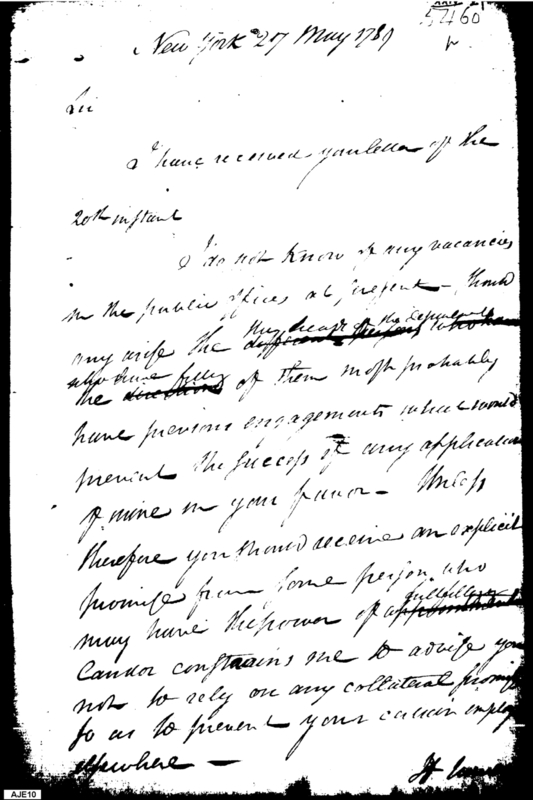 5460
New York 27 May 1789
Sir
I have received your letter of the
20th instant
I do not know of any vacancies
in the public offices at present - should
the heads of the
any arise the different persons who have
who have
the direction of them most probably
have previous engagements which would
prevent the success of any application
of mine in your favor - Unless
therefore you should receive an explicit
promise from some person who
fulfilling
may have the power of appointment
Candor constrains me to advise you
not to rely on any collateral promise
so as to prevent your
elsewhere -
AJE10